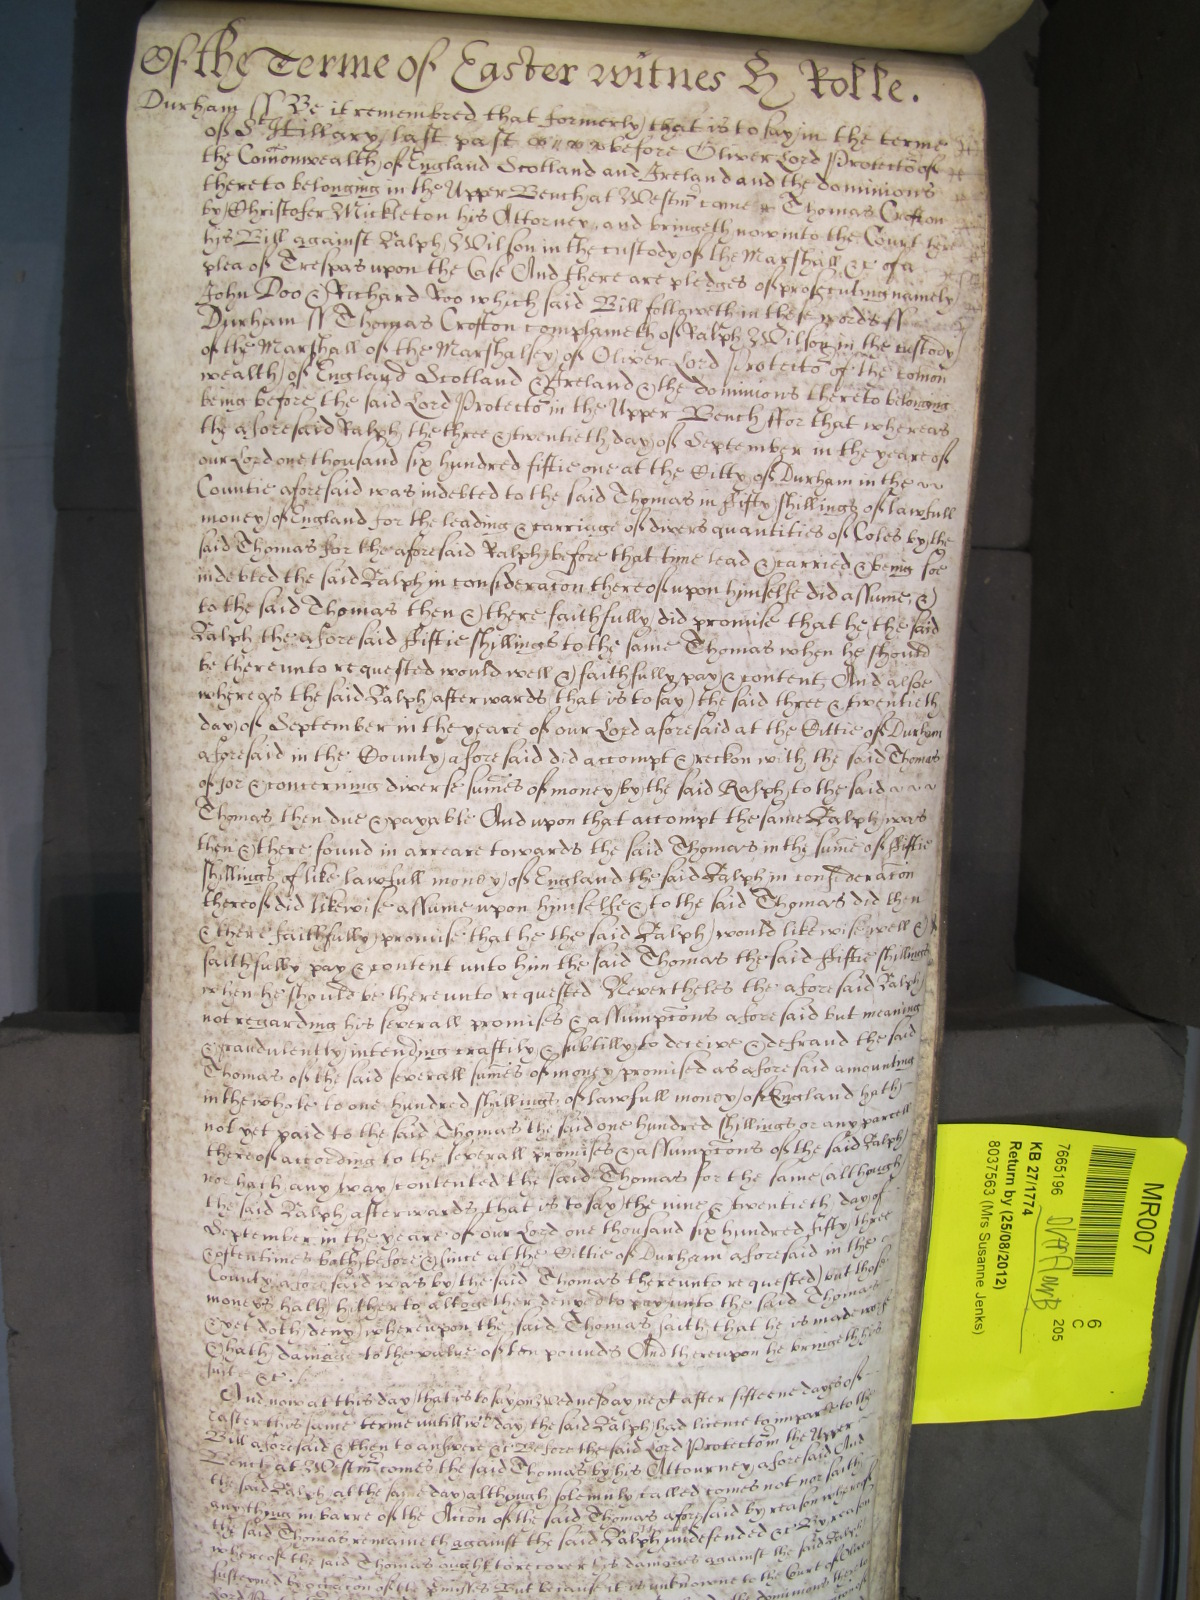 Of the Terme of Easter witnes H Rolle.
Durham ss Be it remembred that formerly that is to say in the terme
of St Hillary last past before Oliver Lord Protector of
the Comonwealth of England Scotland and Ireland and the dominions
thereto belonging in the Upper Bench at Westm came Thomas Crofton
by Christofer Mickleton his Attorney and bringeth now into the Court here
his Bill against Ralph Wilson in the custody of the Marshall &c of a
plea of Trespas upon the Case And there are pledges of prosecuting namely
John Doo & Richard Roo which said Bill followeth in these words ss
Durham ss Thomas Crofton complaineth of Ralph Wilson in the custody
of the Marshall of the Marshalsey of Oliver Lord Protector of the comon
wealth of England Scotland & Ireland & the dominions thereto belonging
being before the said Lord Protector in the Upper Bench ffor that whereas
the aforesaid Ralph the three & twentieth day of September in the yeare of
our Lord one thousand six hundred fiftie one at the Citty of Durham in the
Countie aforesaid was indebted to the said Thomas in fifty shillings of lawfull
money of England for the leading & carriage of divers quantities of Coles by the
said Thomas for the aforesaid Ralph before that time lead & carried & being soe
indebted the said Ralph in consideracon thereof upon himselfe did assume &
to the said Thomas then & there faithfully did promise that he the said
Ralph the aforesaid fiftie shillings to the same Thomas when he should
be thereunto requested would well & faithfully pay & content And alsoe
whereas the said Ralph afterwards that is to say the said three & twentieth
day of September in the yeare of our Lord aforesaid at the Cittie of Durham
aforesaid in the County aforesaid did accompt & reckon with the said Thomas
of for & concerning diverse sumes of money by the said Ralph to the said
Thomas then due & payable And upon that accompt the same Ralph was
then & there found in arreare towards the said Thomas in the sume of fiftie
shillings of like lawfull money of England the said Ralph in consideracon
thereof did likewise assume upon himselfe & to the said Thomas did then
& there faithfully promise that he the said Ralph would likewise well &
faithfully pay & content unto him the said Thomas the said fiftie shillings
when he should be thereunto requested Nevertheles the aforesaid Ralph
not regarding his severall promises & assumpcons aforesaid but meaning
& fraudulently intending craftily & subtilly to deceive & defraud the said
Thomas of the said severall sumes of money promised as aforesaid amounting
in the whole to one hundred shillings of lawfull money of England hath
not yet paid to the said Thomas the said one hundred shillings or any parcell
thereof according to the severall promises & assumpcons of the said Ralph
nor hath any way contented the said Thomas for the same although
the said Ralph afterwards that is to say the nine & twentieth day of
September in the yeare of our Lord one thousand six hundred fifty three
& oftentimes both before & since at the Cittie of Durham aforesaid in the
County aforesaid was by the said Thomas thereunto requested but those
moneys hath hitherto altogether denyed to pay unto the said Thomas
& yet doth deny whereupon the said Thomas saith that he is made worse
& hath damage to the value of ten pounds And thereupon he bringeth his
suite &c
And now at this day that is to say on Wednesday next after fifteene dayes of
Easter this same terme untill wch day the said Ralph had licence to imparle to the
Bill aforesaid & then to answere &c Before the said Lord Protector in the Upper
Bench at Westm comes the said Thomas by his Attourney aforesaid And
the said Ralph at the same day although solemnly called comes not nor saith
anything in barre of the Accon of the said Thomas aforesaid by reason whereof
the said Thomas remaineth against the said Ralph undefended &c By reason
whereof the said Thomas ought to recover his damages against the said Ralph
susteyned by occacon of the premisses But because it is unknowne to the Court of Oliver
MR007
6
C
205
7665196
KB 27/1774
Return by (25/08/2012)
8037563 (Mrs Susanne Jenks)